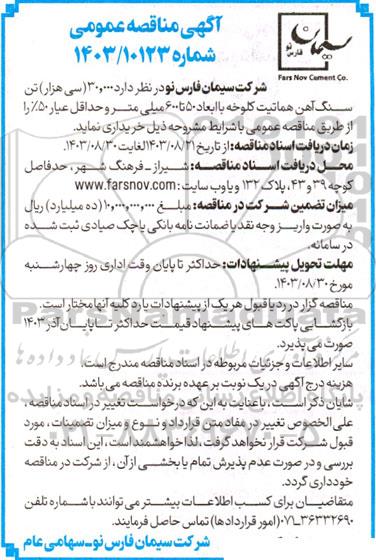 آگهی مناقصه عمومی
شماره ۱۴۰۳/۱۰۱۲۳
سیمان
فارس نو
Fars Nov Cement Co.
شرکت سیمان فارس نو در نظر دارد ۳۰,۰۰۰ (سی هزار) تن
سنگ آهن هماتیت کلوخه با ابعاد ۵۰ تا ۶۰۰ میلی متر و حداقل عیار ۵۰٪ را
از طریق مناقصه عمومی با شرایط مشروحه ذیل خریداری نماید.
زمان دریافت اسناد مناقصه: از تاریخ ۱۴۰۳/۰۸/۲۱ لغایت ۱۴۰۳/۰۸/۳۰.
محل دریافت اسناد مناقصه: شیراز ـ فرهنگ شهر، حدفاصل
کوچه ۳۹ و ۴۳، پلاک ۱۳۲ و یا وب سایت: www.farsnov.com
میزان تضمین شرکت در مناقصه: مبلغ ۱۰,۰۰۰,۰۰۰,۰۰۰ (ده میلیارد) ریال
به صورت واریز وجه نقد یا ضمانت نامه بانکی یا چک صیادی ثبت شده
در سامانه.
مهلت تحویل پیشنهادات: حداکثر تا پایان وقت اداری روز چهارشنبه
مورخ ۱۴۰۳/۰۸/۳۰.
مناقصه گزار در رد یا قبول هر یک از پیشنهادات یا رد کلیه آنها مختار است.
بازگشایی پاکت های پیشنهاد قیمت حداکثر تا پایان آذر ۱۴۰۳
صورت می پذیرد.
سایر اطلاعات و جزئیات مربوطه در اسناد مناقصه مندرج است.
هزینه درج آگهی در یک نوبت بر عهده برنده مناقصه می باشد.
شایان ذکر است، با عنایت به این که درخواست تغییر در اسناد مناقصه،
علی الخصوص تغییر در مفاد متن قرارداد و نوع و میزان تضمینات، مورد
قبول شرکت قرار نخواهد گرفت، لذا خواهشمند است، این اسناد به دقت
بررسی و در صورت عدم پذیرش تمام یا بخشی از آن، از شرکت در مناقصه
خودداری گردد.
متقاضیان برای کسب اطلاعات بیشتر می توانند با شماره تلفن
۰۷۱-۳۶۳۳۲۶۹۰ (امور قراردادها) تماس حاصل فرمایند.
شرکت سیمان فارس نو ـ سهامی عام